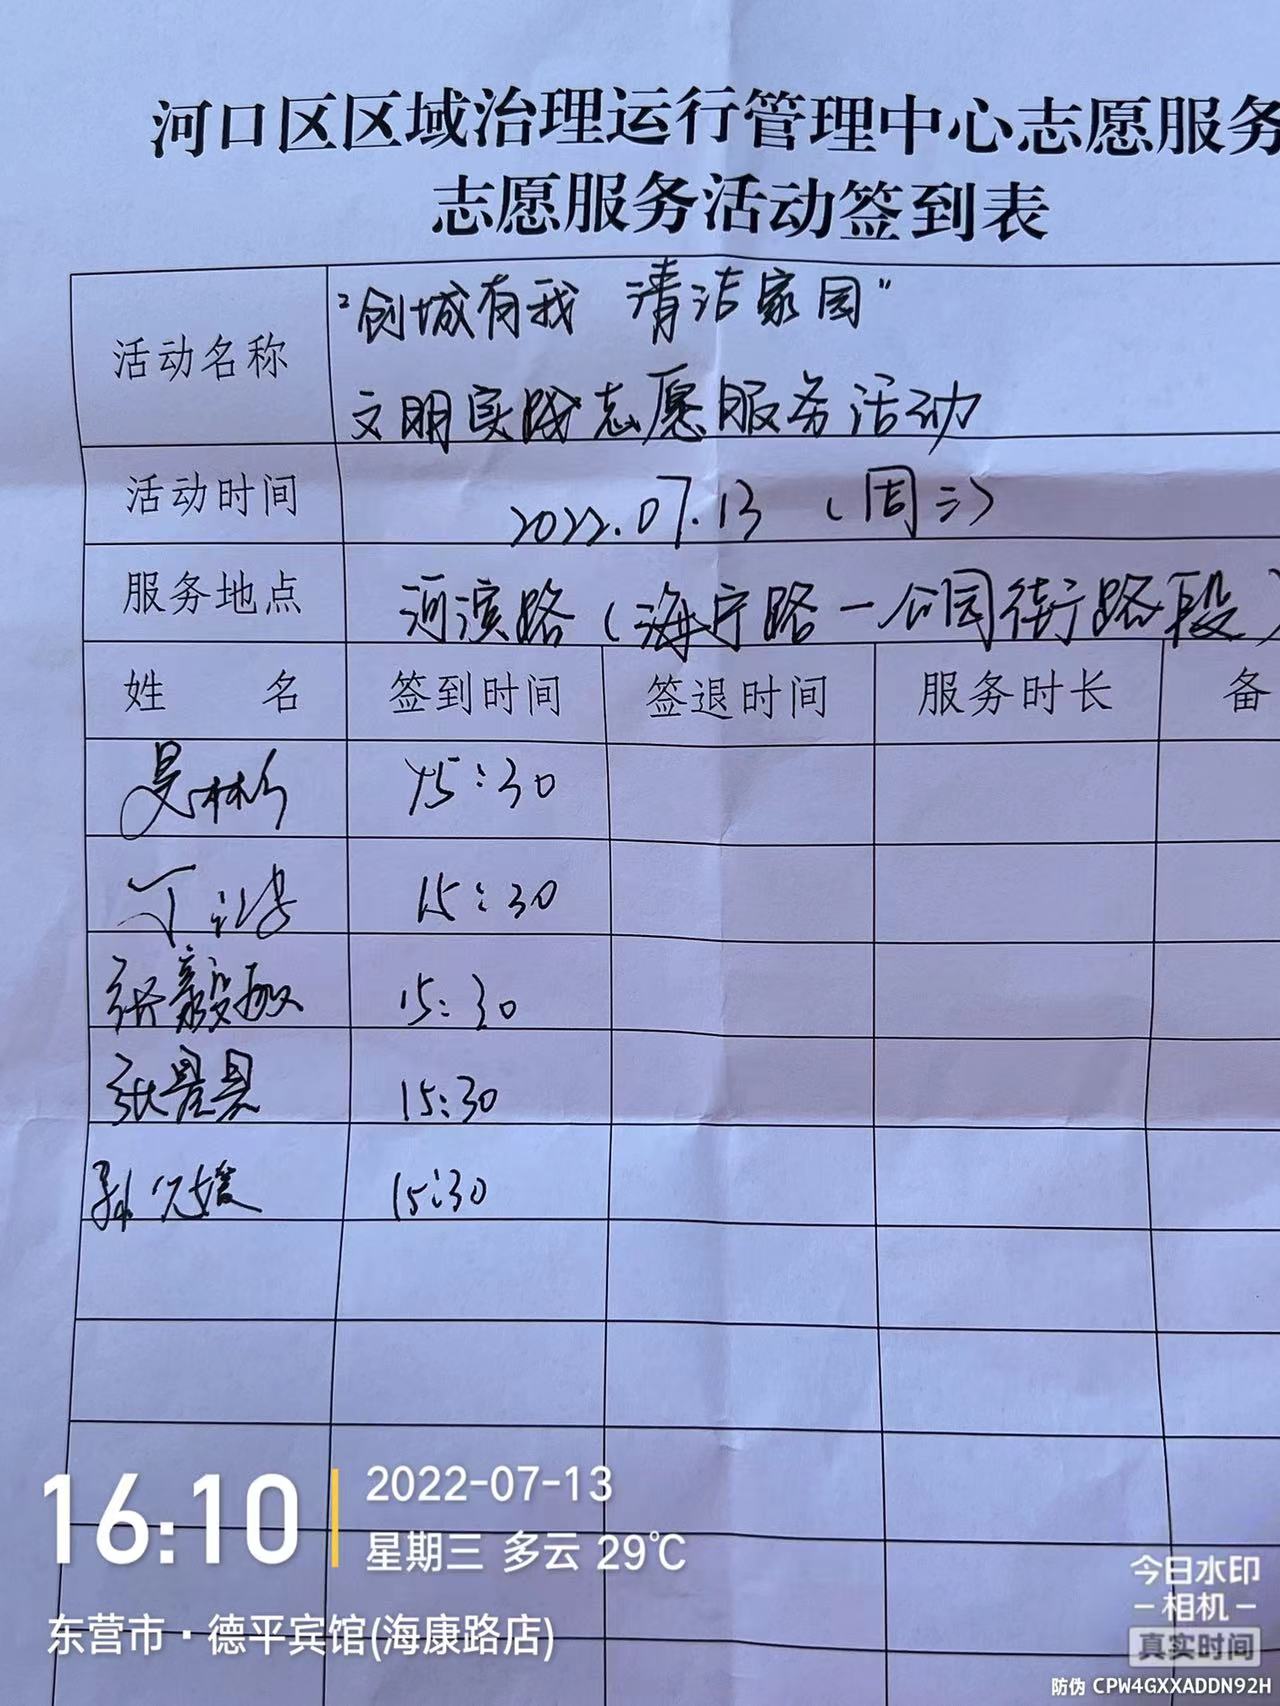 河口区区域治理运行管理中心志愿服务
志愿服务活动签到表
活动名称 "创城有我 清洁家园"
文明实践志愿服务活动
活动时间 2022.07.13（周三）
服务地点 河滨路（海宁路一公园街路段）
姓 名 签到时间 签退时间 服务时长 备
15:30
15:30
张毅敏 15:30
张景昊 15:30
孙 媛 15:30
16:10
2022-07-13
星期三 多云 29℃
东营市·德平宾馆(海康路店)
今日水印
-相机-
真实时间
防伪 CPW4GXXADDN92H